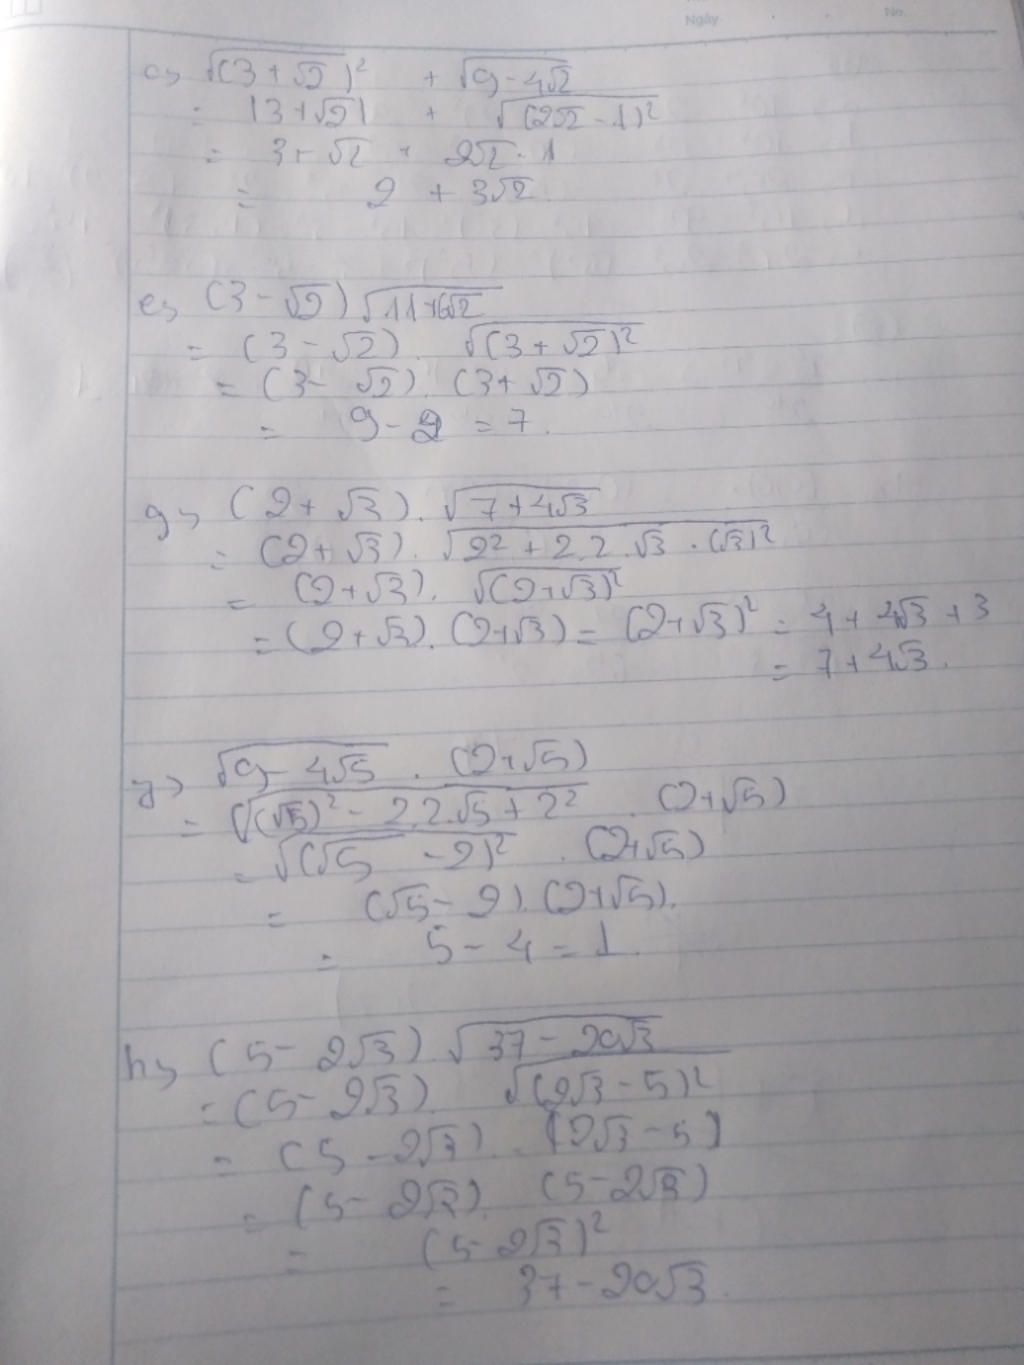 Ngày
No.
c) √(3+√2)² + √9-4√2
= |3+√2| + √(2√2-1)²
= 3+√2 + 2√2-1
= 2 + 3√2
e) (3-√2)√11+6√2
= (3-√2). √(3+√2)²
= (3-√2). (3+√2)
= 9-2 = 7.
g) (2+√3).√7+4√3
= (2+√3).√2²+2.2.√3.(√3)²
= (2+√3). √(2+√3)²
= (2+√3).(2+√3) = (2+√3)² = 4+4√3+3
= 7+4√3.
y) √9-4√5 . (2+√5)
= √(√5)²-2.2.√5+2² . (2+√5)
= √(√5-2)² . (2+√5)
= (√5-2).(2+√5).
= 5-4 = 1.
h) (5-2√3) √37-20√3
= (5-2√3). √(2√3-5)²
= (5-2√3). |2√3-5|
= (5-2√3). (5-2√3)
= (5-2√3)²
= 37-20√3.